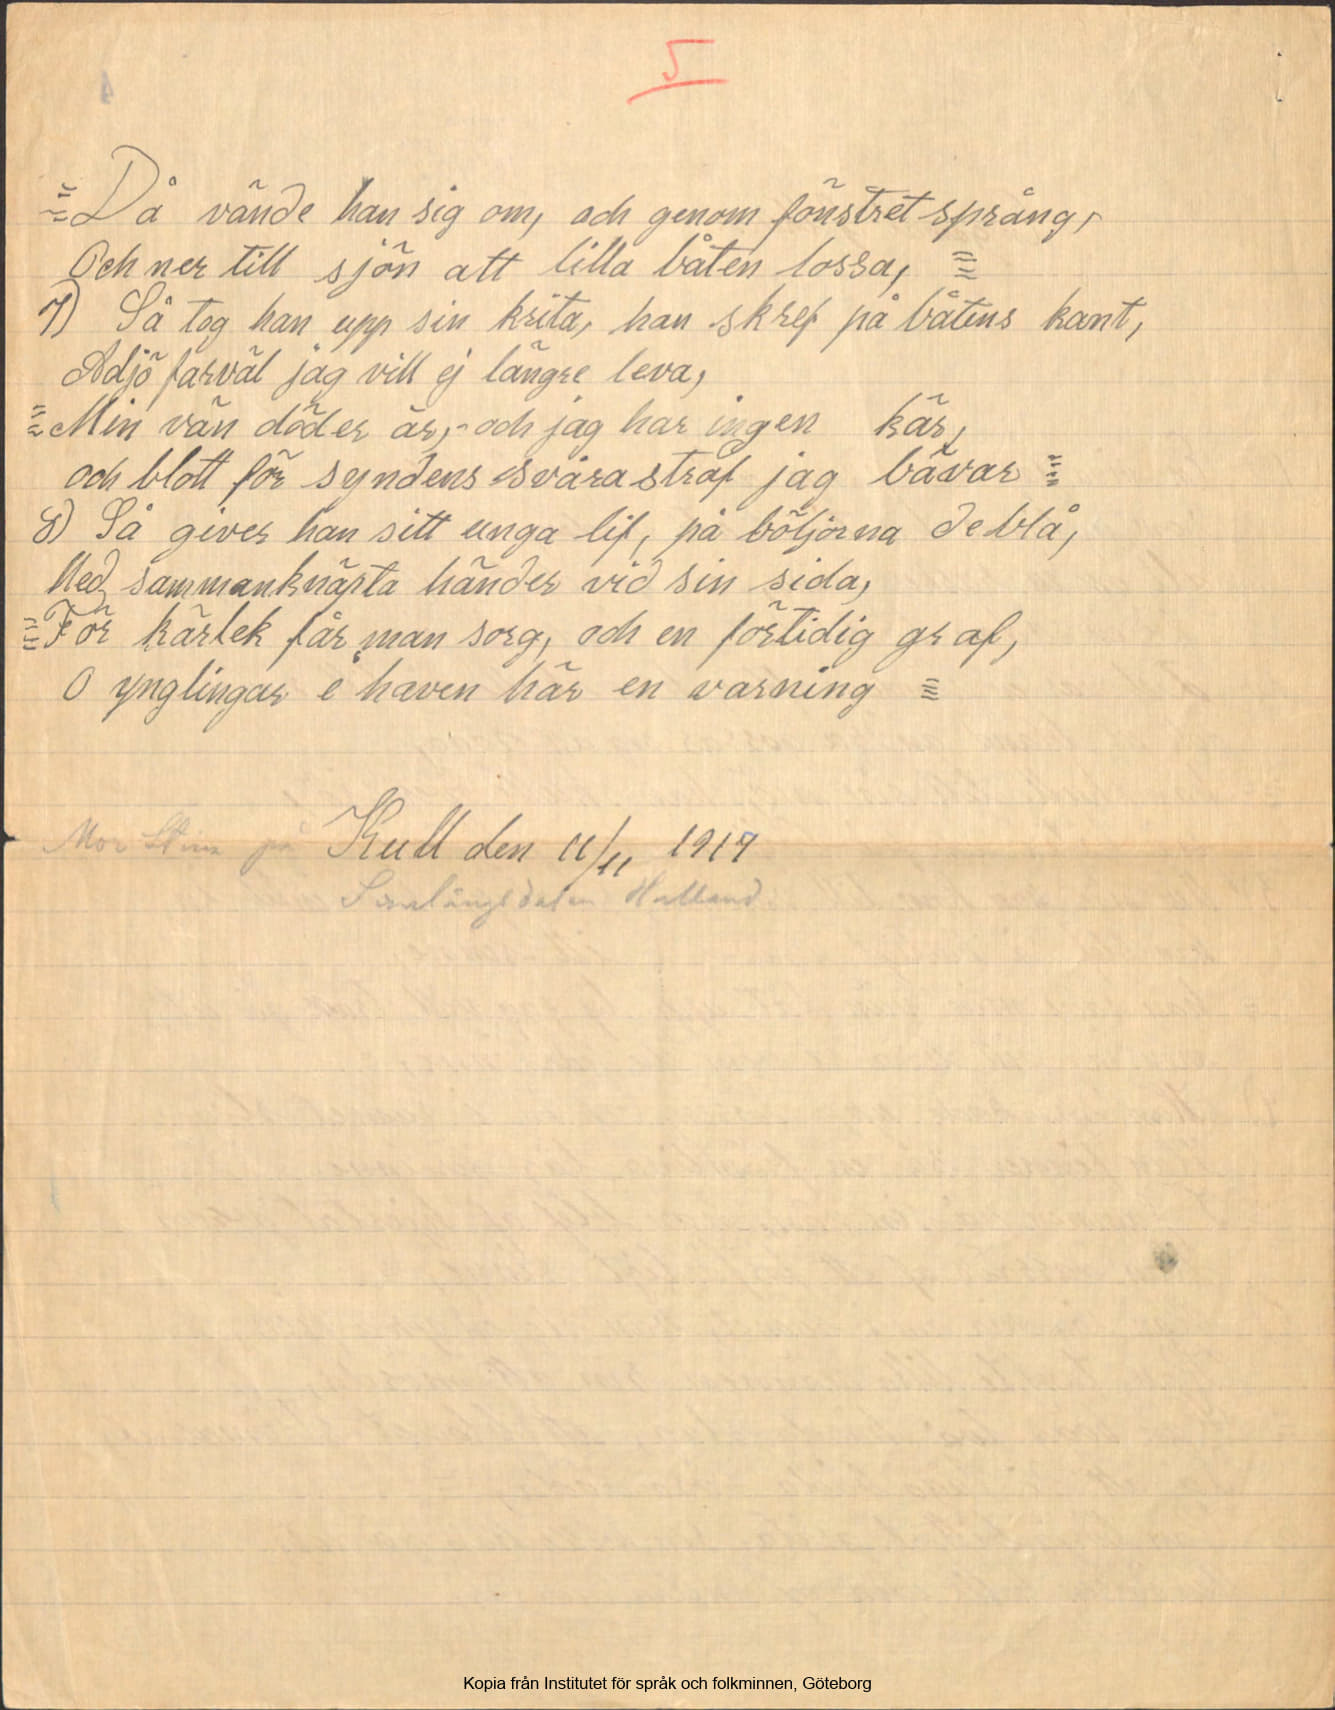 5
Då vände han sig om, och genom fönstret språng,
Och ner till sjön att lilla båten lossa,
7) Så tog han upp sin krita, han skref på båtens kant,
Adjö farväl jag vill ej längre leva,
Min vän döder är, och jag har ingen kär,
och blott för syndens svåra straf jag bävar
8) Så giver han sitt unga lif, på böljorna de blå,
Med sammanknäpta händer vid sin sida,
För kärlek får man sorg, och en förtidig graf,
O ynglingar i haven här en varning
Mor Stina på Kull den 11/11 1917
Simlångsdalen Halland.
Kopia från Institutet för språk och folkminnen, Göteborg